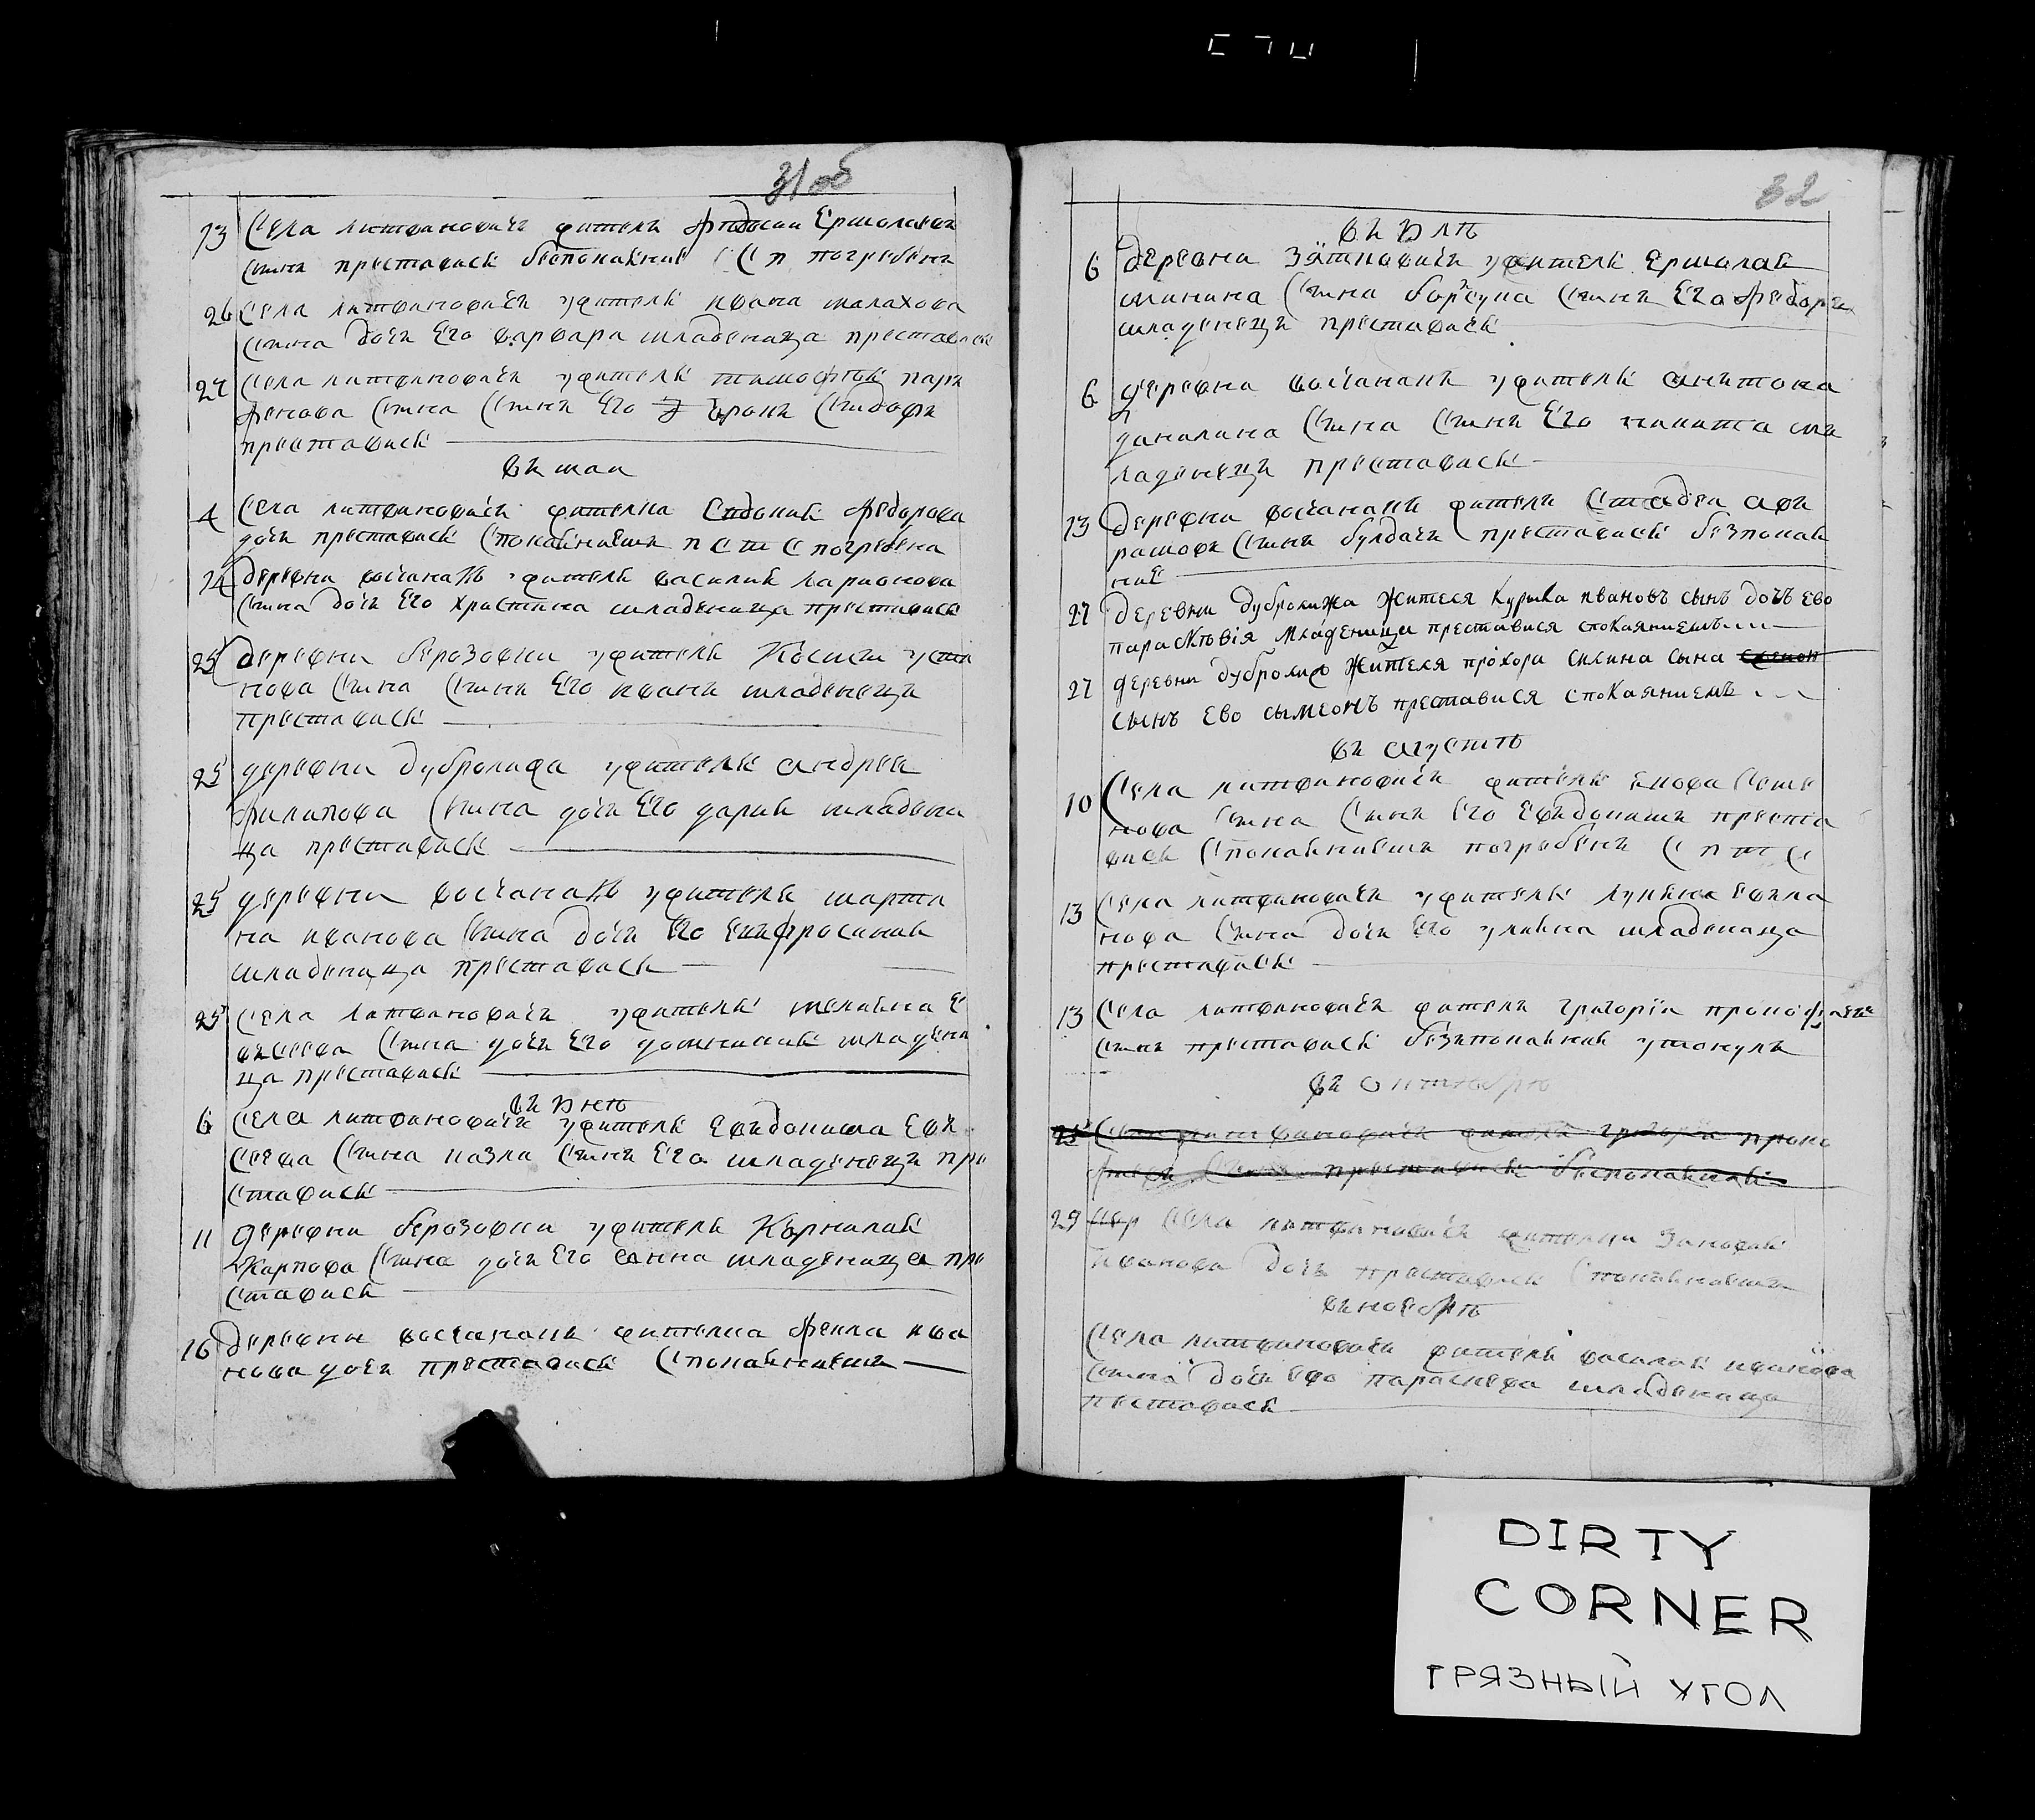 31 об
13 Села литвиновичъ житель феодосии Ермолаевъ
сынъ преставися беспокаяние С С п погребенъ
26 села литвиновичъ жителя ивана малахова
сына дочь его варвара младеница преставися
27 Села литвиновичъ жителя тимофея пар
фенова сына сынъ его сидоръ
преставися
въ маи
4 Села литвиновичъ жителка Федорова
дочь преставися спокаяниемъ п С т С погребена
14 деревни восчанаѣ жителя василия ларионова
сына дочь его христина младеница преставися
25 деревни березовки жителя Косми усти
нова сына сынъ его иванъ младенецъ
преставися
25 деревни дубролижа жителя андрея
филипова сына дочь его дария младени
ца преставися
25 деревни восчанаѣ жителя марти
на иванова сына дочь его ефросиния
младеница преставися
25 села литвиновичъ жителя е
всеева сына дочь его младени
ца преставися
въ июнѣ
6 Села литвиновичъ жителя Евдокима Ев
сеева сына сынъ его младенецъ пре
ставися
11 деревни березовки жителя Корнилия
Карпова сына дочь его анна младеница пре
ставися
16 деревни восчанаки жителка фекла ива
нова дочь преставися спокаяниемъ
32
въ июлѣ
6 деревни зятковичъ жителя ермолая
минина сына борсука сынъ его феодоръ
младенецъ преставися
6 деревни восчанаки жителя антона
данилина сына сынъ его никита мъ
ладенецъ преставися
13 деревни восчанаки житель ав
рамовъ сынъ булдачъ преставися безпокая
ние
27 деревни дубролижа жителя Курила ивановъ сынъ дочь ево
параскѣвія младеница преставися спокаяниемъ
27 деревни дубролижа жителя прохора сына семион
сынъ ево сымеонъ преставися спокаяниемъ
въ августѣ
10 Села литвиновичъ жителя Семе
нова сына сынъ его Евдокимъ преста
вися спокаяниемъ погребенъ С п т С
13 Села литвиновичъ жителя лукияна
нова сына дочь его улияна младеница
преставися
13 Села литвиновичъ житель григорія прокофиевъ
сынъ преставися безпокаяния утонулъ
въ октябрѣ
25 Села литвиновичъ житель григорія проко
фиевъ сынъ преставися беспокаяния
29 села литвиновичъ жителки
иванова дочь преставися спокаяниемъ
въ ноебрѣ
Села литвиновичъ жителя василия иванова
сына дочь ево параскева младеница
преставися
DIRTY
CORNER
ГРЯЗНЫЙ УГОЛ